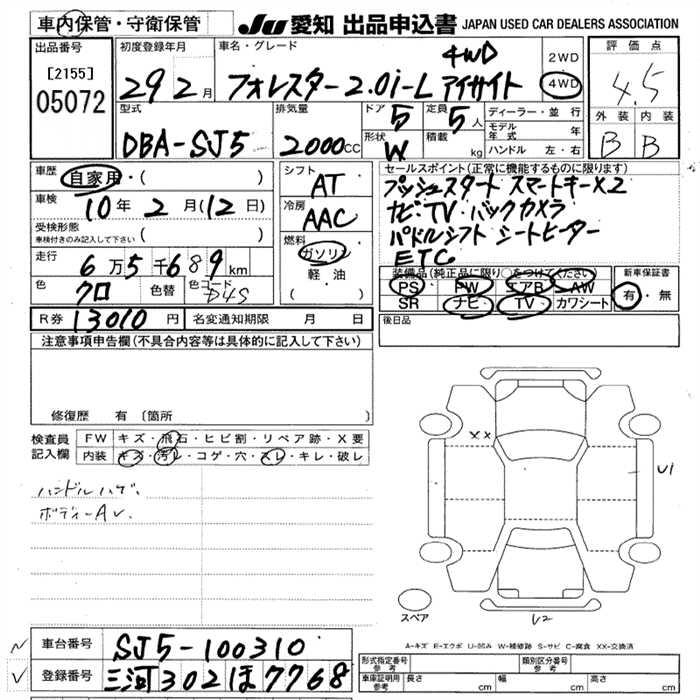 車内保管・守衛保管
JU 愛知 出品申込書 JAPAN USED CAR DEALERS ASSOCIATION
出品番号
[2155]
05072
初度登録年月
29 2 月
車名・グレード
4WD
フォレスター2.0i-L アイサイト
2WD
4WD
評価点
4.5
外装 内装
B B
型式
DBA-SJ5
排気量
2000 CC
ドア 5
定員 5 人
形状 W
積載 kg
ディーラー・並行
モデル年式 年
ハンドル 左・右
車歴
自家用・( )
車検
10 年 2 月 (12 日)
受検形態
車検付きのみ記入して下さい ( )
走行
6 万 5 千 689 km
色
クロ
色替
色コード
D4S
シフト
AT
冷房
AAC
燃料
ガソリン
軽・油
( )
セールスポイント(正常に機能するものに限ります)
プッシュスタート スマートキー×2
ナビ・TV・バックカメラ
パドルシフト シートヒーター
ETC
装備品(純正品に限り○をつけてください)
PS PW エアB AW
SR ナビ TV カワシート
新車保証書
有・無
R券 13010 円
名変通知期限 月 日
後日品
注意事項申告欄(不具合内容等は具体的に記入して下さい)
修復歴 有〔箇所
検査員記入欄
FW キズ・飛石・ヒビ割・リペア跡・X要
内装 キズ・汚レ・コゲ・穴・スレ・キレ・破レ
ハンドルハゲ、
ボディーAU.
XX
U1
U2
スペア
A-キズ E-エクボ U-凹み W-補修跡 S-サビ C-腐食 XX-交換済
車台番号 SJ5-100310
登録番号 三河302ほ7768
形式指定番号
参考
類別区分番号
参考
車庫証明用
参考
長さ cm
幅 cm
高さ cm